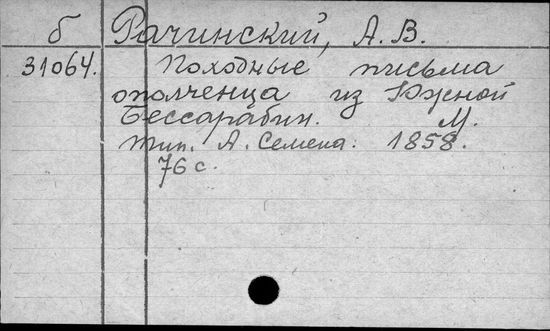 б Рачинский, А. В.
31064. Походные письма
ополченца из Южной
Бессарабии. М.
тип. А. Семена. 1858.
76 с.